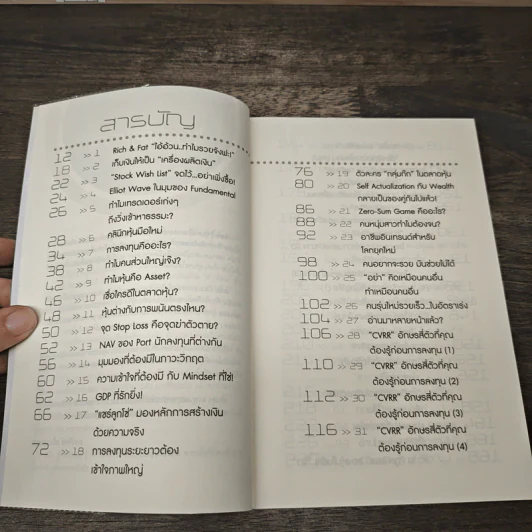 สารบัญ
12 >> 1 Rich & Fat "ไอ้อ้วน..ทำไมรวยจังฟะ!"
18 >> 2 เก็บเงินให้เป็น "เครื่องผลิตเงิน"
22 >> 3 "Stock Wish List" จดไว้...อย่าเพิ่งซื้อ!
24 >> 4 Elliot Wave ในมุมของ Fundamental
26 >> 5 ทำไมเทรดเดอร์เก่งๆ
ถึงวิ่งเข้าหาธรรมะ?
28 >> 6 คลินิกหุ้นมือใหม่
34 >> 7 การลงทุนคืออะไร?
38 >> 8 ทำไมคนส่วนใหญ่เจ๊ง?
42 >> 9 ทำไมหุ้นคือ Asset?
46 >> 10 เชื่อใครดีในตลาดหุ้น?
48 >> 11 หุ้นต่างกับการพนันตรงไหน?
50 >> 12 จุด Stop Loss คือจุดฆ่าตัวตาย?
52 >> 13 NAV ของ Port นักลงทุนที่ต่างกัน
56 >> 14 มุมมองที่ต้องมีในภาวะวิกฤต
60 >> 15 ความเข้าใจที่ต้องมี กับ Mindset ที่ใช่!
62 >> 16 GDP ที่รักยิ่ง!
66 >> 17 "แชร์ลูกโซ่" มองหลักการสร้างเงิน
ด้วยความจริง
72 >> 18 การลงทุนระยะยาวต้อง
เข้าใจภาพใหญ่
76 >> 19 ตัวละคร "กลุ่มกึ๊ก" ในตลาดหุ้น
80 >> 20 Self Actualization กับ Wealth
กลายเป็นของคู่กันไปแล้ว!
86 >> 21 Zero-Sum Game คืออะไร?
88 >> 22 คนหนุ่มสาวทำไมต้องจน?
92 >> 23 อาชีพอินเทรนด์สำหรับ
โลกยุคใหม่
98 >> 24 คนอยากจะรวย บ่นช่วยไม่ได้
100 >> 25 "อย่า" คิดเหมือนคนอื่น
ทำเหมือนคนอื่น
102 >> 26 คนรุ่นใหม่รวยเร็ว...ในอัตราเร่ง
104 >> 27 อ่านมาหลายหน้าแล้ว?
106 >> 28 "CVRR" อักษรสี่ตัวที่คุณ
ต้องรู้ก่อนการลงทุน (1)
110 >> 29 "CVRR" อักษรสี่ตัวที่คุณ
ต้องรู้ก่อนการลงทุน (2)
112 >> 30 "CVRR" อักษรสี่ตัวที่คุณ
ต้องรู้ก่อนการลงทุน (3)
116 >> 31 "CVRR" อักษรสี่ตัวที่คุณ
ต้องรู้ก่อนการลงทุน (4)